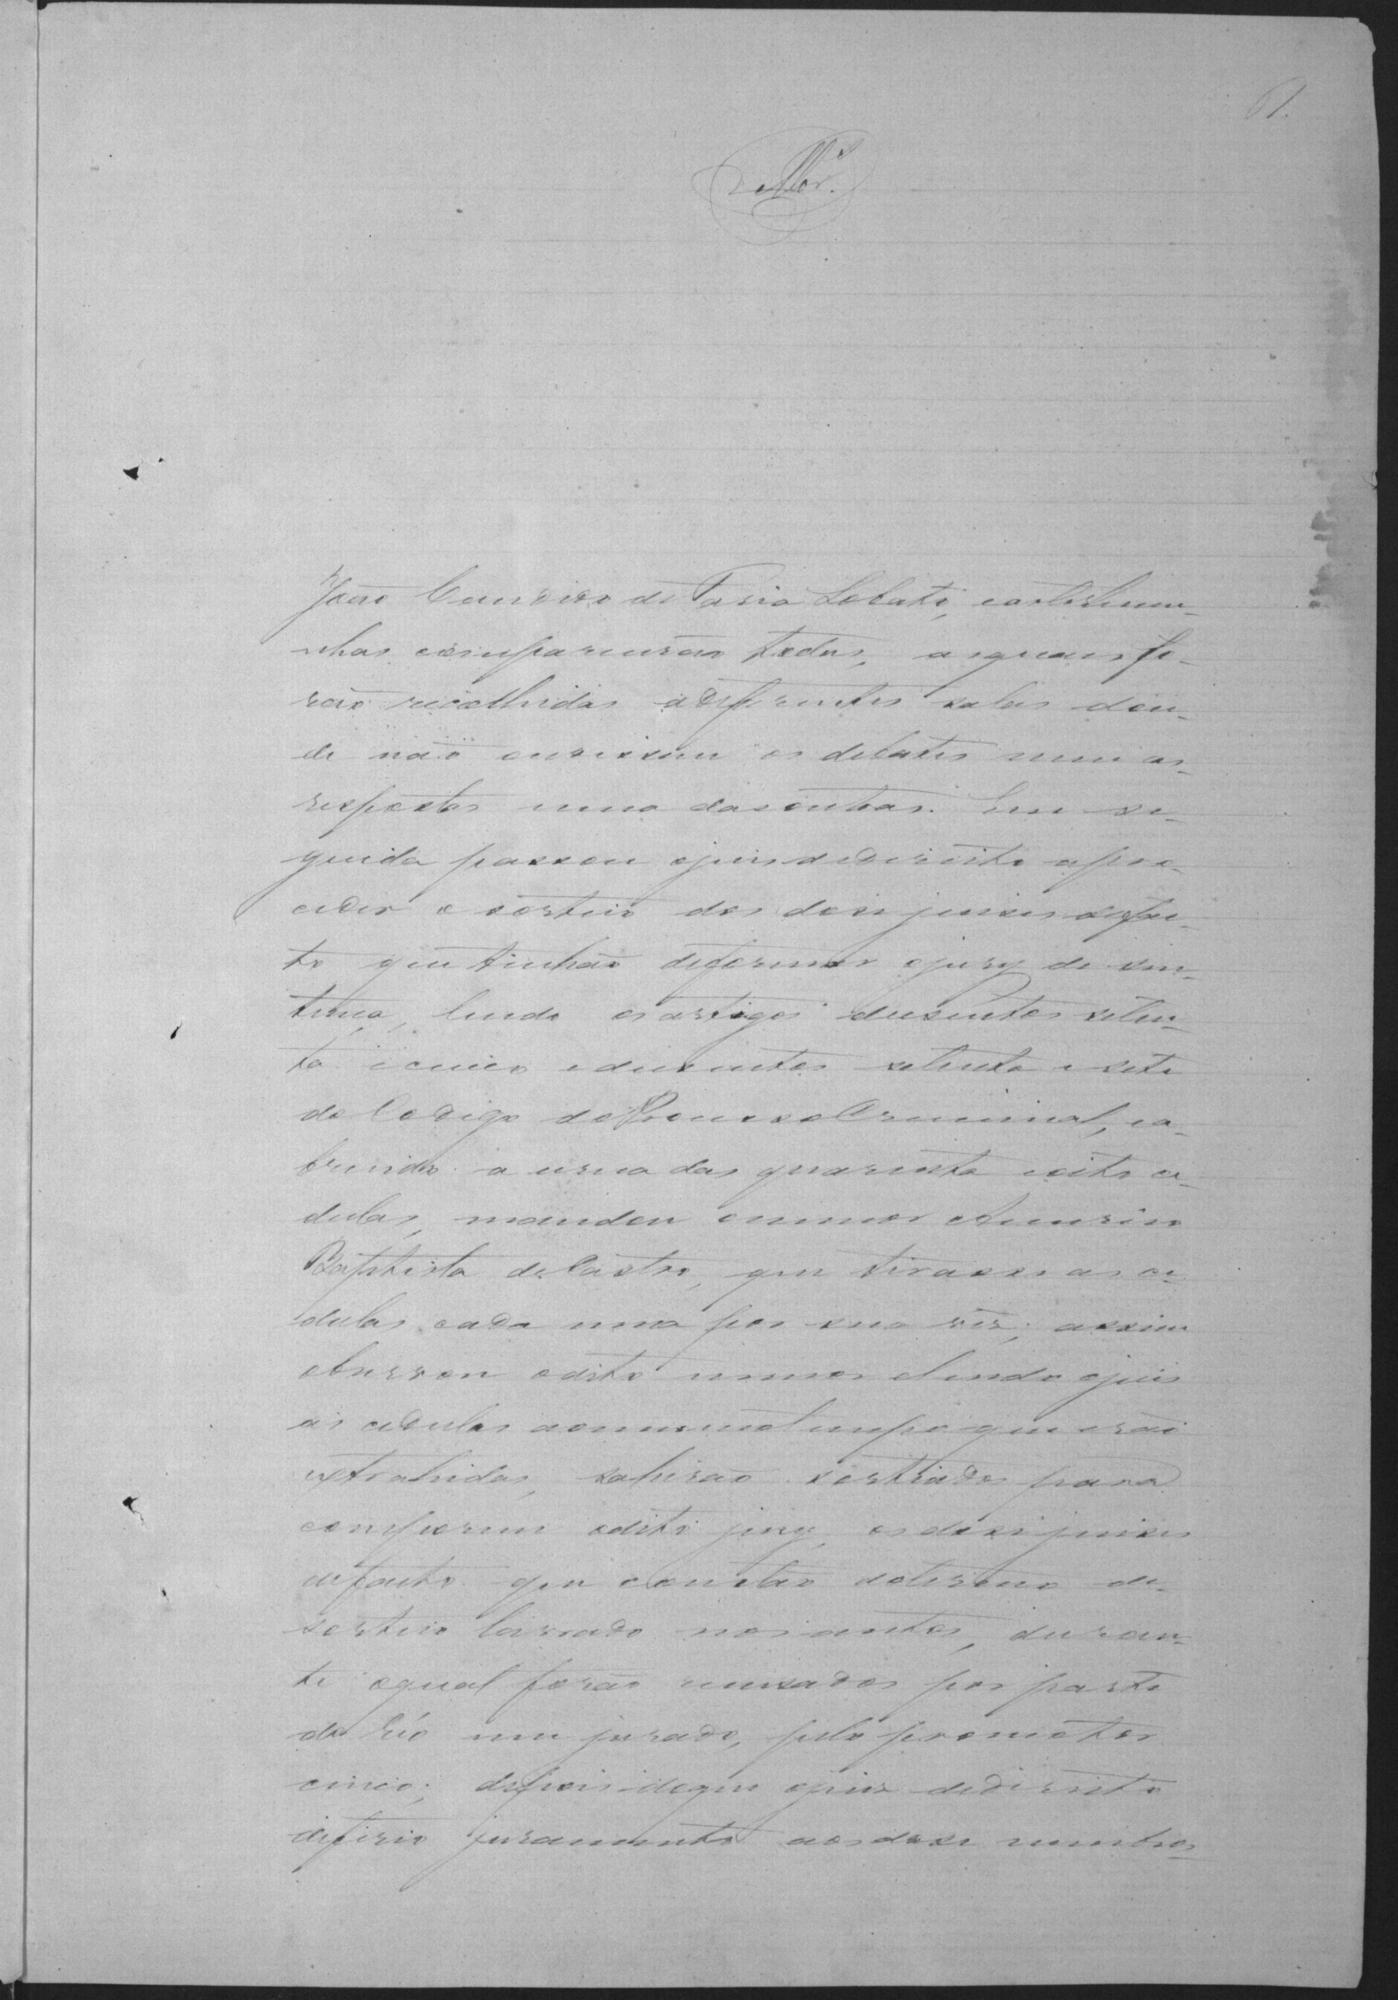 João Candido de Faria Lobato, eastestimu-
nhas comparecerão todas, asquaes fo-
rão recolhidas adifferentes salas don-
de não ouvissem os debates nem as
respostas uma dasoutras. Em se-
guida passou ojuisdedireito apro-
ceder o sorteio dos dose juises defac-
to quetinhão deformar ojury de sen-
tença, lendo osartigos dusentos seten-
ta ecinco edusentos setenta e sete
do Codigo doProcessoCriminal, ea-
brindo a urna das quarenta eoito ce-
dulas, mandou omenor
Baptista deCastro, que tirasse as ce-
dulas cada uma por sua vez; assim
observou odito menor elendo ojuis
as cedulas aomesmotempo que erão
extrahidas, sahirão sorteados para
comporem odito jury, osdose juises
defacto que constão dotermo de
sorteio lavrado nosautos, duran-
te oqual forão recusados por parte
do réo um jurado, pelo promotor
cinco; depois doque ojuis dedireito
deferio juramento aosdose membros